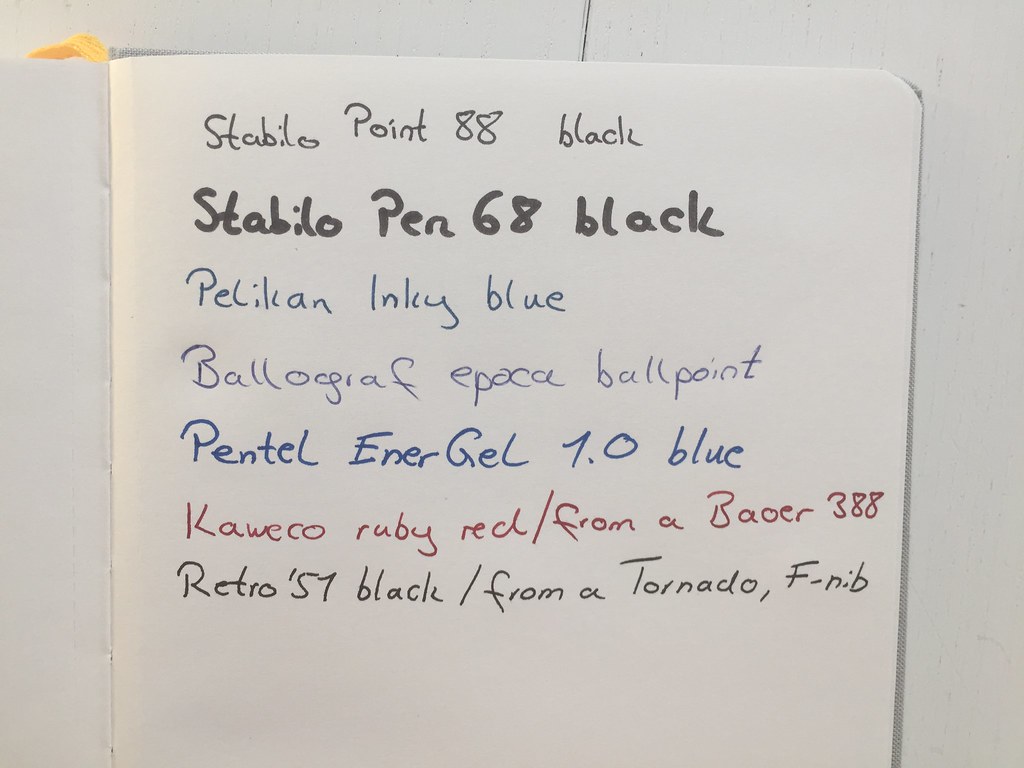 Stabilo Point 88 black
Stabilo Pen 68 black
Pelikan Inky blue
Ballograf epoca ballpoint
Pentel EnerGel 1.0 blue
Kaweco ruby red/from a Baoer 388
Retro '51 black / from a Tornado, F-nib